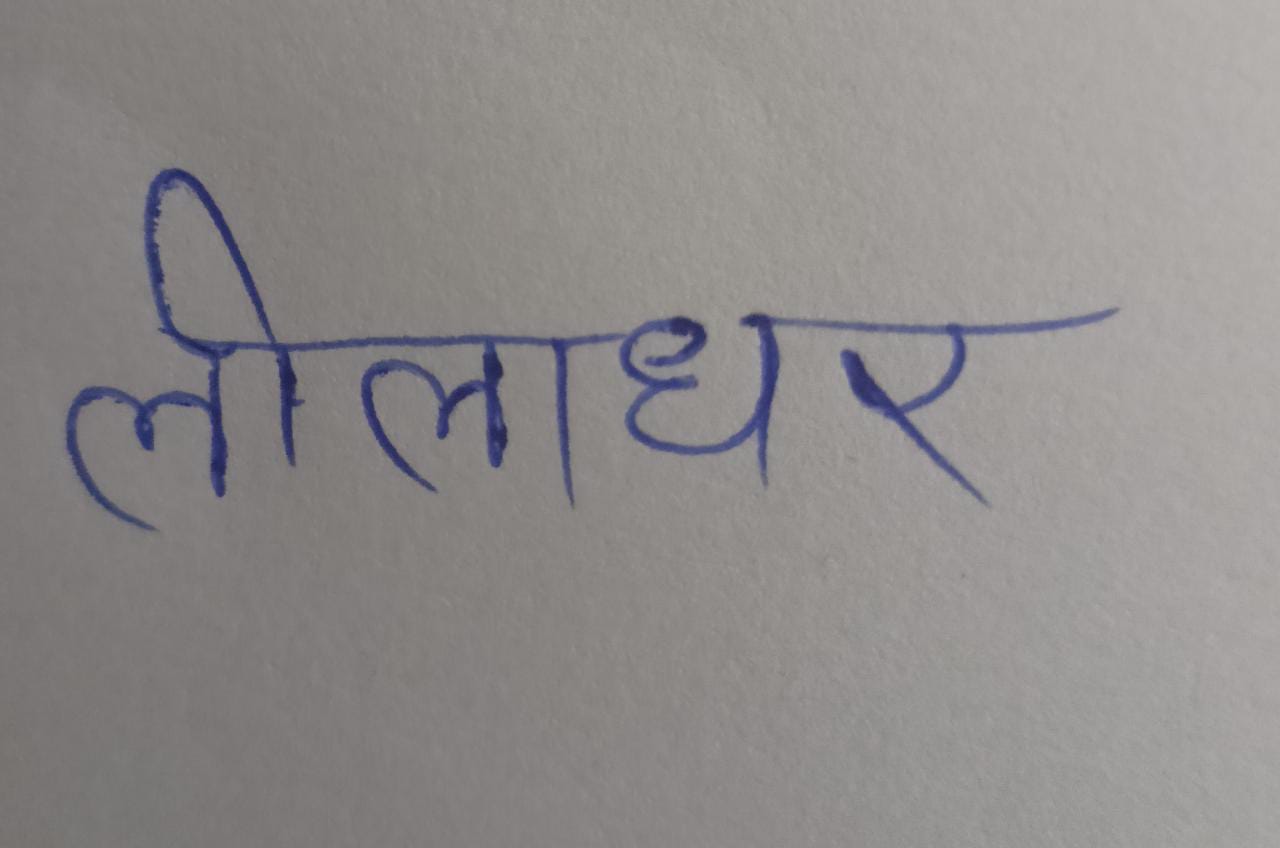 लीलाधर